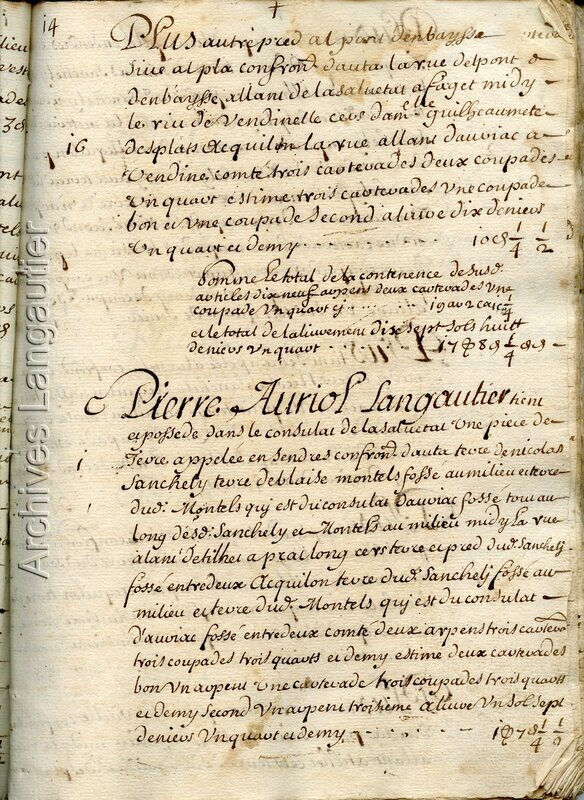 14
Plus autre pred al pont denbaysse
sive al pla confrond dauta la rue delpont d
denbaysse allant de la salvetat a faget midy
le riu de Vendinelle cers dam.elle guilheaumete
16 desplats Acquilon la rue allant dauriac a
Vendine comté trois cartevades deux coupades
Un quart estime trois cartevades Une coupade
bon et Une coupade second alivre dix deniers
Un quart et demy 10 d 1/4 1/2
Somme le total de la contenence desusd.
articles dix neuf arpens deux cartevades Une
coupade Un quart cy 19 ar 2 ca 1 c 1/4
et le total de laliurement dix sept sols huitt
deniers Un quart 17 s 8 d 1/4
Pierre Auriol Langautier tient
et possede dans le consulat de la salvetat Une piece de
1 Terre appelée en sendres confrond dauta terre de nicolas
Sanchely terre de blaise montels fossé au milieu et terre
dud. Montels qui est du consulat dauriac fossé tout au
long desd. Sanchely et Montels au milieu midy la rue
alant de tilhet a prat long cers terre et pred dud. Sanchelj
fossé entredeux Acquilon terre dud. Sanchelj fossé au
milieu et terre dud. Montels qui est du consulat
d'auriac fossé entredeux comté deux arpens trois cartevad.
trois coupades trois quarts et demy estime deux cartevades
bon Un arpent Une cartevade trois coupades trois quarts
et demy second Un arpent troisieme alivre Un sol sept
deniers Un quart et demy 1 s 7 d 1/4 1/2
Archives Langautier